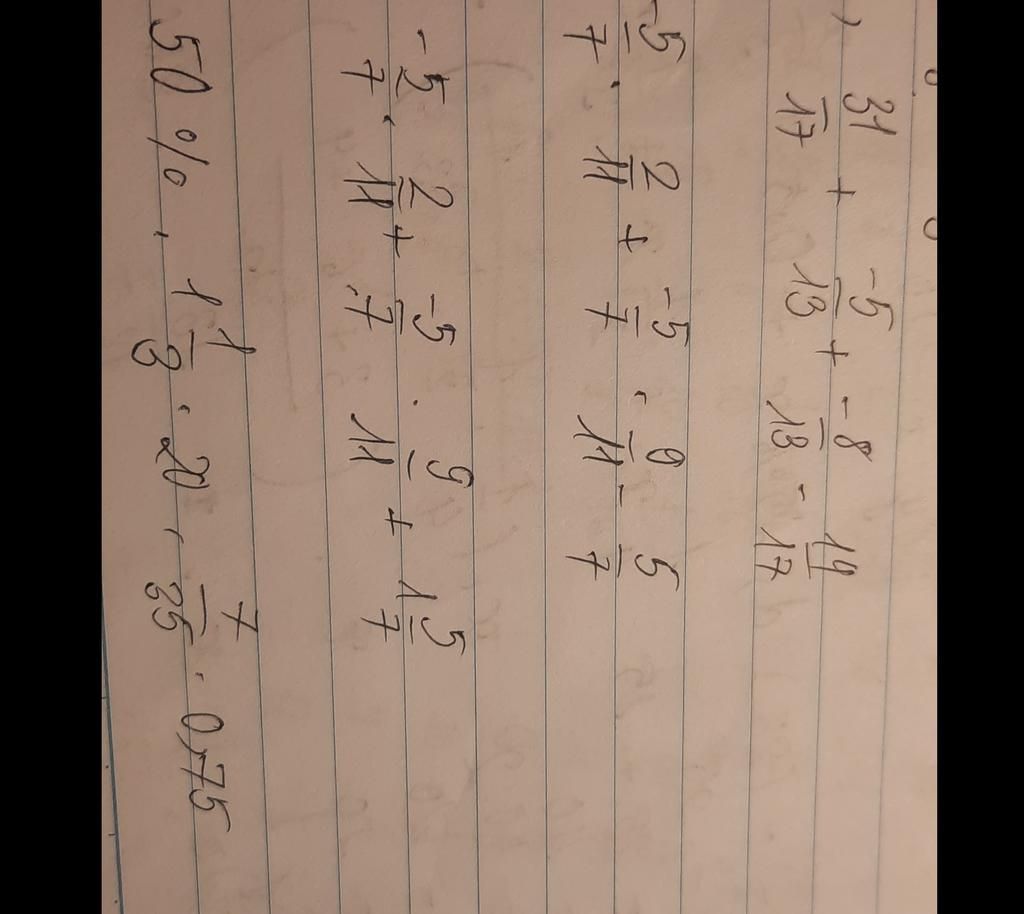 ) 31/17 + -5/13 + -8/13 - 14/17
-5/7 . 2/11 + -5/7 . 9/11 - 5/7
-5/7 . 2/11 + -5/7 . 9/11 + 1 5/7
50 % . 1 1/3 . 20 . 7/35 . 0,75